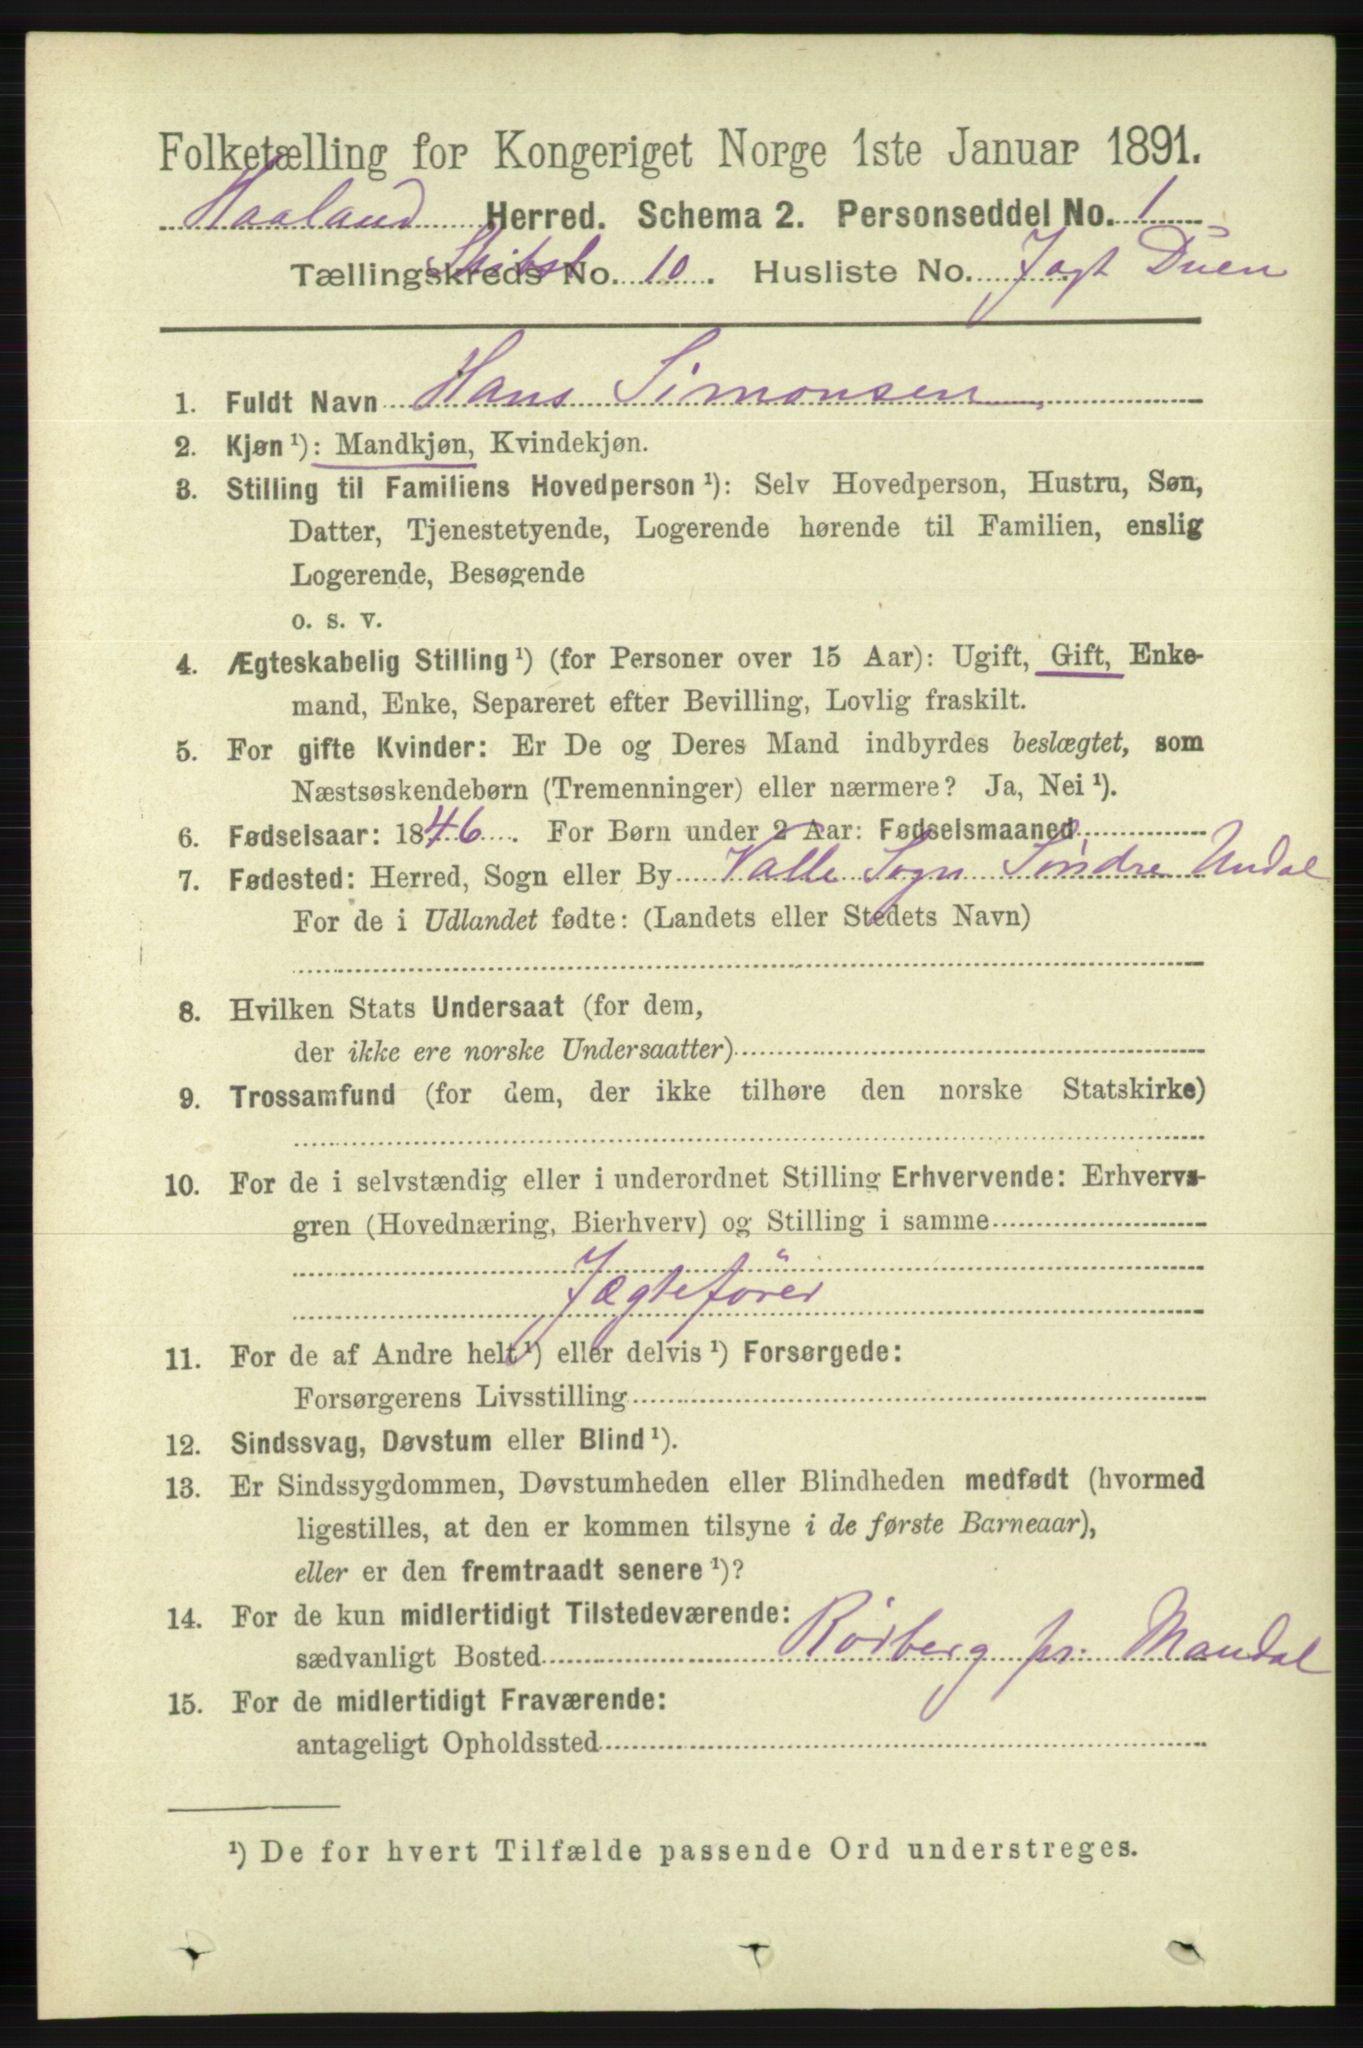 Folketælling for Kongeriget Norge 1ste Januar 1891.
Haaland Herred. Schema 2. Personseddel No. 1
Tællingskreds No. 10. Husliste No. Jagt Duen
Skibsl
1. Fuldt Navn Hans Simonsen
2. Kjøn ¹): Mandkjøn, Kvindekjøn.
3. Stilling til Familiens Hovedperson ¹): Selv Hovedperson, Hustru, Søn,
Datter, Tjenestetyende, Logerende hørende til Familien, enslig
Logerende, Besøgende
o. s. v.
4. Ægteskabelig Stilling ¹) (for Personer over 15 Aar): Ugift, Gift, Enke-
mand, Enke, Separeret efter Bevilling, Lovlig fraskilt.
5. For gifte Kvinder: Er De og Deres Mand indbyrdes beslægtet, som
Næstsøskendebørn (Tremenninger) eller nærmere? Ja, Nei ¹).
6. Fødselsaar: 1846. For Børn under 2 Aar: Fødselsmaaned
7. Fødested: Herred, Sogn eller By Valle Sogn Søndre Undal
For de i Udlandet fødte: (Landets eller Stedets Navn)
8. Hvilken Stats Undersaat (for dem,
der ikke ere norske Undersaatter)
9. Trossamfund (for dem, der ikke tilhøre den norske Statskirke)
10. For de i selvstændig eller i underordnet Stilling Erhvervende: Erhvervs-
gren (Hovednæring, Bierhverv) og Stilling i samme
Jægtefører
11. For de af Andre helt ¹) eller delvis ¹) Forsørgede:
Forsørgerens Livsstilling
12. Sindssvag, Døvstum eller Blind ¹).
13. Er Sindssygdommen, Døvstumheden eller Blindheden medfødt (hvormed
ligestilles, at den er kommen tilsyne i de første Barneaar),
eller er den fremtraadt senere ¹)?
14. For de kun midlertidigt Tilstedeværende:
sædvanligt Bosted Rörberg pr. Mandal
15. For de midlertidigt Fraværende:
antageligt Opholdssted
¹) De for hvert Tilfælde passende Ord understreges.